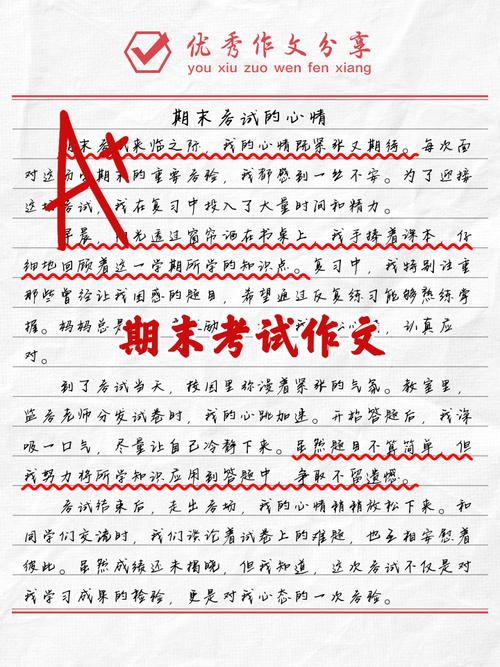 优秀作文分享
you xiu zuo wen fen xiang
期末考试的心情
A+
期末考试来临之际，我的心情既紧张又期待。每次面
对这场学期末的重要考验，我都感到一丝不安。为了迎接
这场考试，我在复习中投入了大量时间和精力。
早晨，阳光透过窗帘洒在书桌上，我手捧着课本，仔
细地回顾着这一学期所学的知识点。复习中，我特别注重
那些曾经让我困惑的题目，希望通过反复练习能够熟练掌
握。妈妈总是 励 心 ，认真应
期末考试作文
对。
到了考试当天，校园里弥漫着紧张的气氛。教室里，
监考老师分发试卷时，我的心跳加速。开始答题后，我深
吸一口气，尽量让自己冷静下来。虽然题目不算简单，但
我努力将所学知识应用到答题中，争取不留遗憾。
考试结束后，走出考场，我的心情稍稍放松下来。和
同学们交流时，我们谈论着试卷上的难题，也互相安慰着
彼此。虽然成绩还未揭晓，但我知道，这次考试不仅是对
我学习成果的检验，更是对我心态的一次考验。